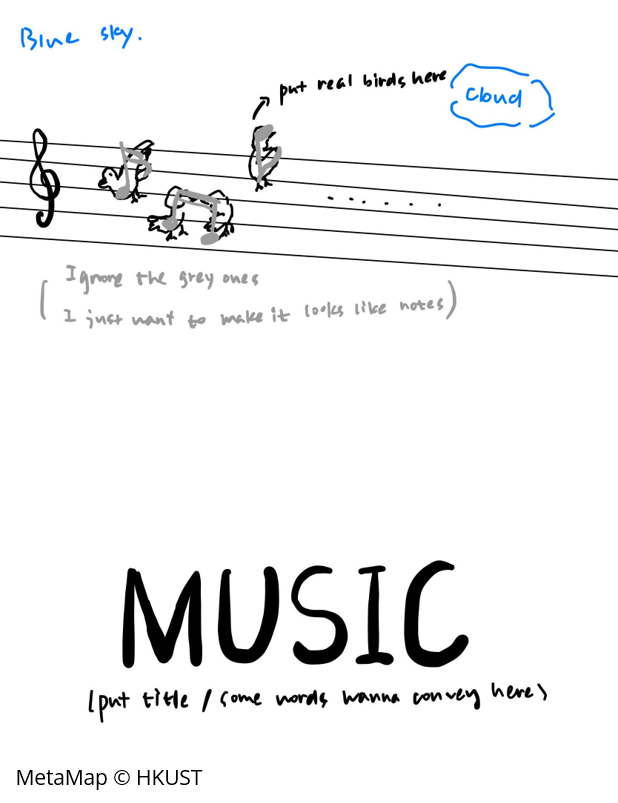 Blue sky.
put real birds here
cloud
(Ignore the grey ones
I just want to make it looks like notes)
MUSIC
(put title / some words wanna convey here)
MetaMap © HKUST